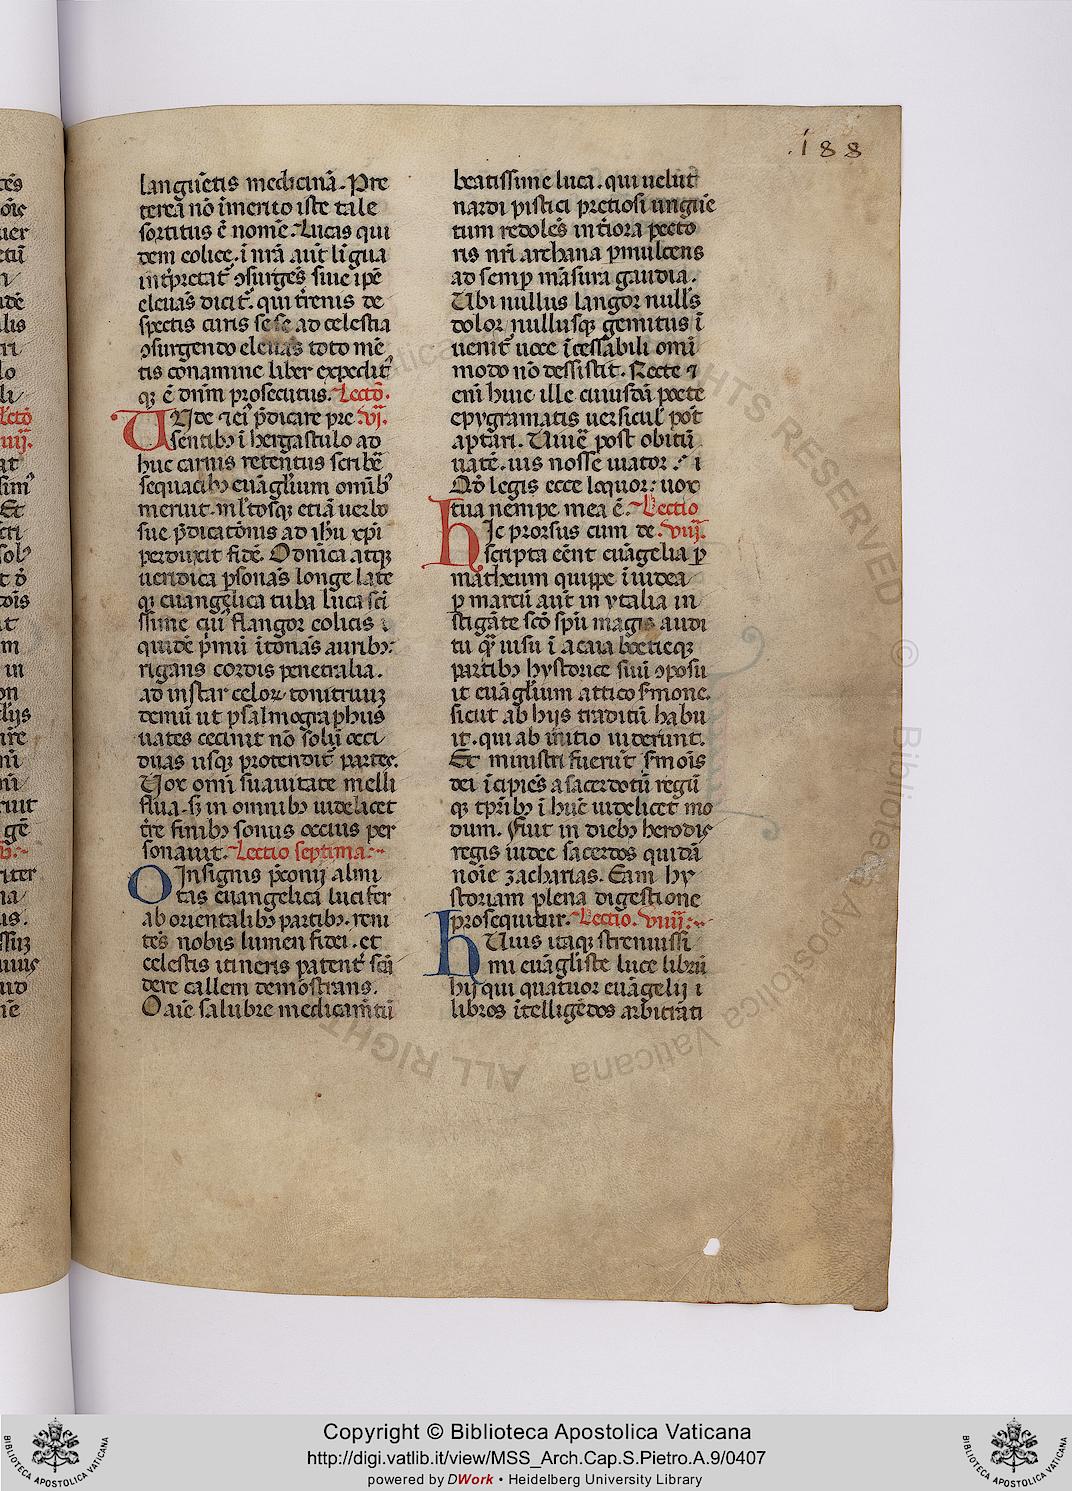 .188
langue͂tis medicina͂. Pre
terea no͂ i͂merito iste tale
sortitus e͂ nome͂. Lucas qui
dem eolice. i͂ nr͂a aut͂ li͂gua
int͂pretat᷑ ꝯsurge͂s siue ip͂e
eleua͂s dicit᷑. qui t͂renis de
spectis curis sese ad celestia
ꝯsurgendo eleua͂s toto me͂
tis conamine liber expedit᷑
qꝫ e͂ dn͂m prosecutus. Lectio͂.
Unde ⁊ ei᷑ p͂dicare pre .vi.
sentibꝫ i͂ hergastulo ad
huc carnis retentus scribe͂
sequacibꝫ eua͂gl͂ium omibꝫ
meruit. ml͂tosqꝫ etia͂ uerbo
sue p͂dicatio͂nis ad ih͂u xp͂i
perduxit fide͂. Odnica atqꝫ
ueridica ꝑsona͂s longe late
qꝫ euangelica tuba luca sc͂i
ssime cui᷑ flangor eolicis
quide͂ p͂mu͂ i͂tona͂s auribꝫ:
rigans cordis penetralia.
ad instar celoꝝ tonitruuꝫ
demu͂ ut psalmographus
uates cecinit no͂ solu͂ occi
duas usqꝫ protendit᷑ partes.
Uox omi͂ suauitate melli
flua. sꝫ in omnibꝫ uidelicet
t͂re finibꝫ sonus ocius per
sonauit. Lectio septima:~
O Insignis p͂conij almi
tas euangelica lucifer
ab orientalibꝫ partibꝫ. reni
te͂s nobis lumen fidei. et
celestis itineris patent᷑ sca͂
dere callem demo͂strans.
O aie͂ salubre medicam͂tu͂
beatissime luca. qui uelut
nardi pistici pretiosi ungue͂
tum redole͂s int͂iora pecto
ris nr͂i archana ꝑmulcens
ad semꝑ ma͂sura gaudia.
Ubi nullus langor null᷑s
dolor nullusqꝫ gemitus i͂
uenit᷑ uoce i͂cessabili omi͂
modo no͂ dessistit. Recte ⁊
eni͂ huic ille cuiusda͂ poete
epygramatis uersicul᷑ pot͂
aptari. Uiue͂ post obitu͂
uate͂. uis nosse uiator
Qd͂ legis ecce loquor: uox
tua nempe mea e͂. Lectio
hIc prorsus cum de .viij.
scripta ee͂nt eua͂gelia ꝑ
matheum quippe i͂ iudea
ꝑ marcu͂ aut͂ in ytalia in
stiga͂te sc͂o sp͂u magis audi
tu qᷓ͂ uisu i͂ acaia boetieqꝫ
partibꝫ hystorice siui ꝯposu
it eua͂gl͂ium attico s͂mone.
sicut ab hijs traditu͂ habu
it. qui ab initio uiderunt.
Et ministri fueru͂t s͂mo͂is
dei i͂cipie͂s a sacerdotu͂ regu͂
qꝫ tp͂ribꝫ i͂ hu͂c uidelicet mo
dum. Fuit in diebꝫ herodis
regis iudee sacerdos quida͂
noi͂e zacharias. Eam hy
storiam plena digestione
prosequitur. Lectio. viiij:~
hUius itaqꝫ strenuissi
mi eua͂gl͂iste luce libru͂
hij qui quatuor eua͂gelij
libros i͂tellige͂dos arbitrati
Copyright © Biblioteca Apostolica Vaticana
http://digi.vatlib.it/view/MSS_Arch.Cap.S.Pietro.A.9/0407
powered by DWork • Heidelberg University Library